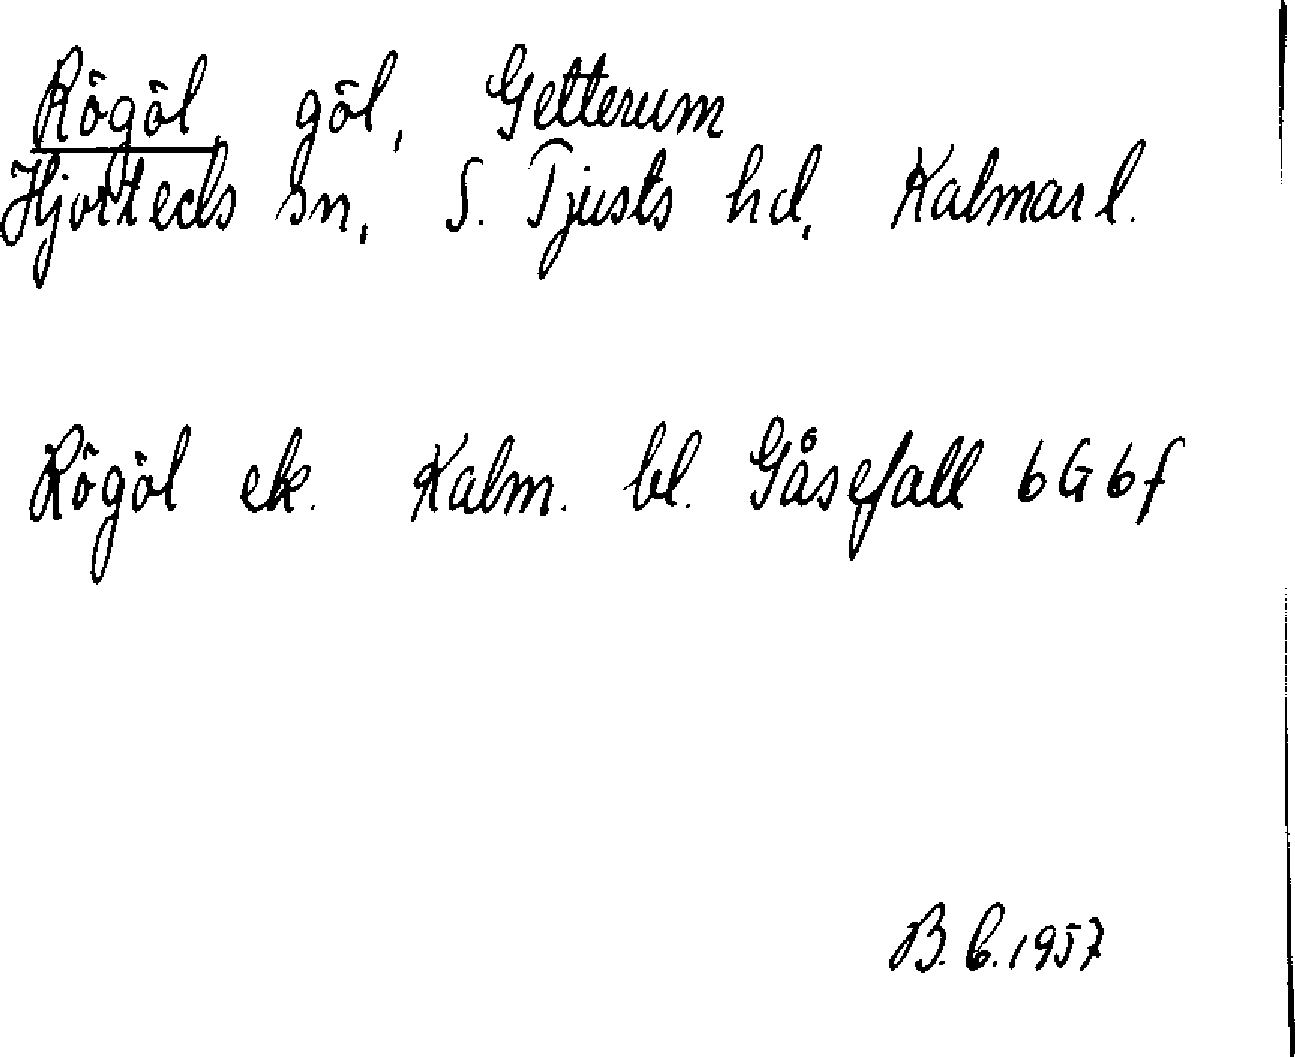 Rögöl, göl, Getterum
Hjorteds sn, S. Tjusts hd, Kalmar l.
Rögöl ek. Kalm. bl. Gåsefall 6G6f
B. C. 1957